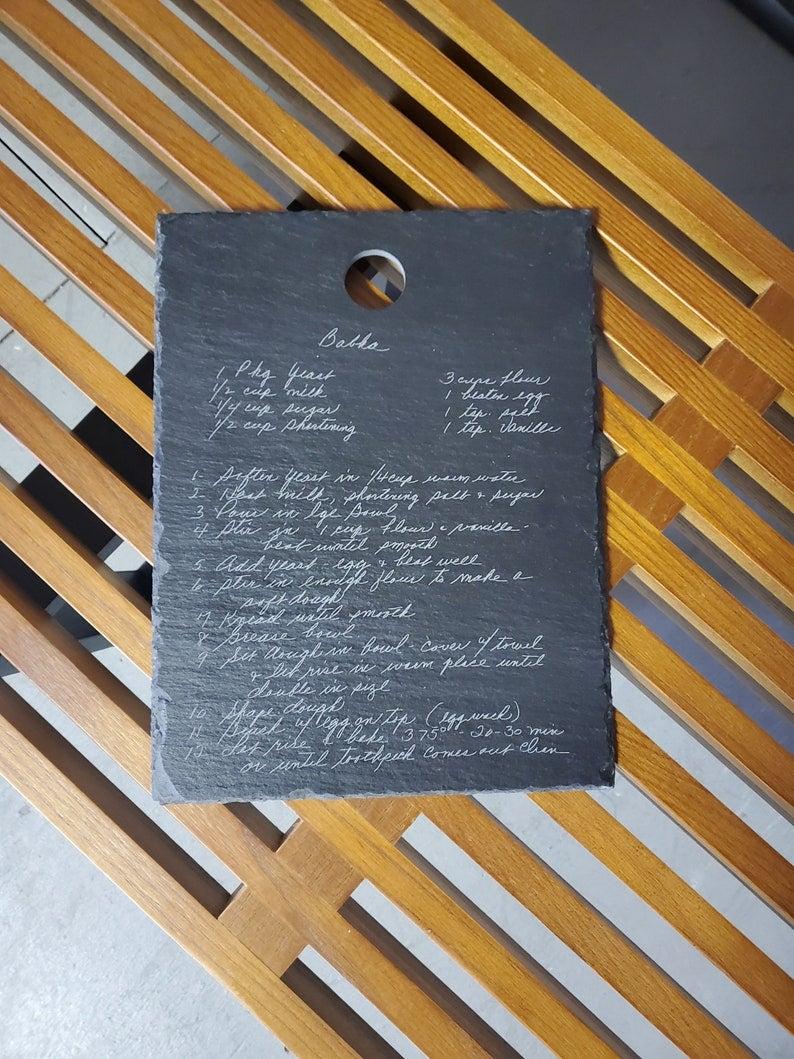 Babka
1 Pkg Yeast
1/2 cup milk
1/4 cup sugar
1/2 cup shortening
3 cups flour
1 beaten egg
1 tsp. salt
1 tsp. Vanilla
1- Soften yeast in 1/4 cup warm water
2- Heat milk, shortening salt & sugar
3 Pour in lge Bowl
4 Stir in 1 cup flour & vanilla-
beat until smooth
5 Add yeast - egg & beat well
6 Stir in enough flour to make a
soft dough
7 Knead until smooth
8 Grease bowl
9 Sit dough in bowl - cover w/ towel
& let rise in warm place until
double in size
10 Shape dough
11 Brush w/ egg on top (egg wash)
12 Let rise & bake 375° - 20-30 min
or until toothpick comes out clean